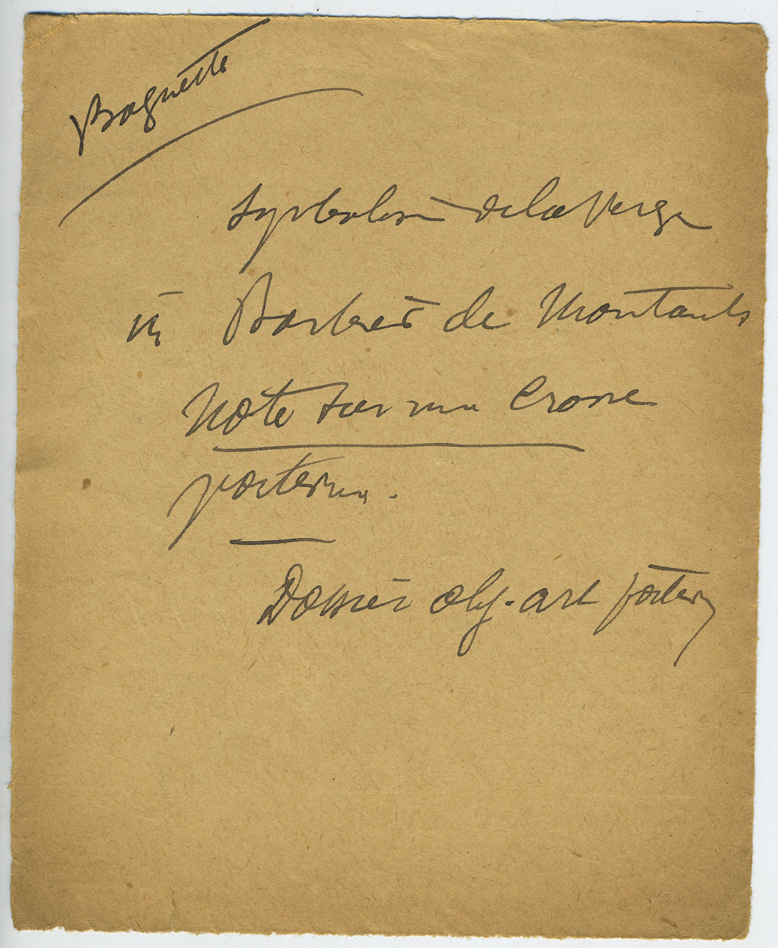 Baguette
Symbolisme de la Verge
in Barbier de Montault
Note sur une Crosse
poitevine.
Dossier obj. art poitevin